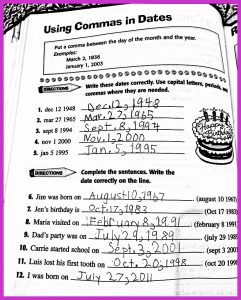 Using Commas in Dates
Put a comma between the day of the month and the year.
Examples:
March 2, 1836
January 1, 2003
DIRECTIONS Write these dates correctly. Use capital letters, periods,
commas where they are needed.
1. dec 12 1948 Dec. 12, 1948
2. mar 27 1965 Mar. 27, 1965
3. sept 8 1994 Sept. 8, 1994
4. nov 1 2000 Nov. 1, 2000
5. jan 5 1995 Jan. 5, 1995
Happy Birthday
DIRECTIONS Complete the sentences. Write the
date correctly on the line.
6. Jim was born on August 10, 1967 (august 10 1967)
7. Jen's birthday is Oct. 17, 1983 (Oct 17 1983)
8. Maria visited on February 8, 1991 (february 8 1991
9. Dad's party was on July 29, 1989 (july 29 198
10. Carrie started school on Sept. 3, 2001 (sept 3 200
11. Luis lost his first tooth on Oct. 20, 1998 (oct 20 199
12. I was born on July 27, 2011